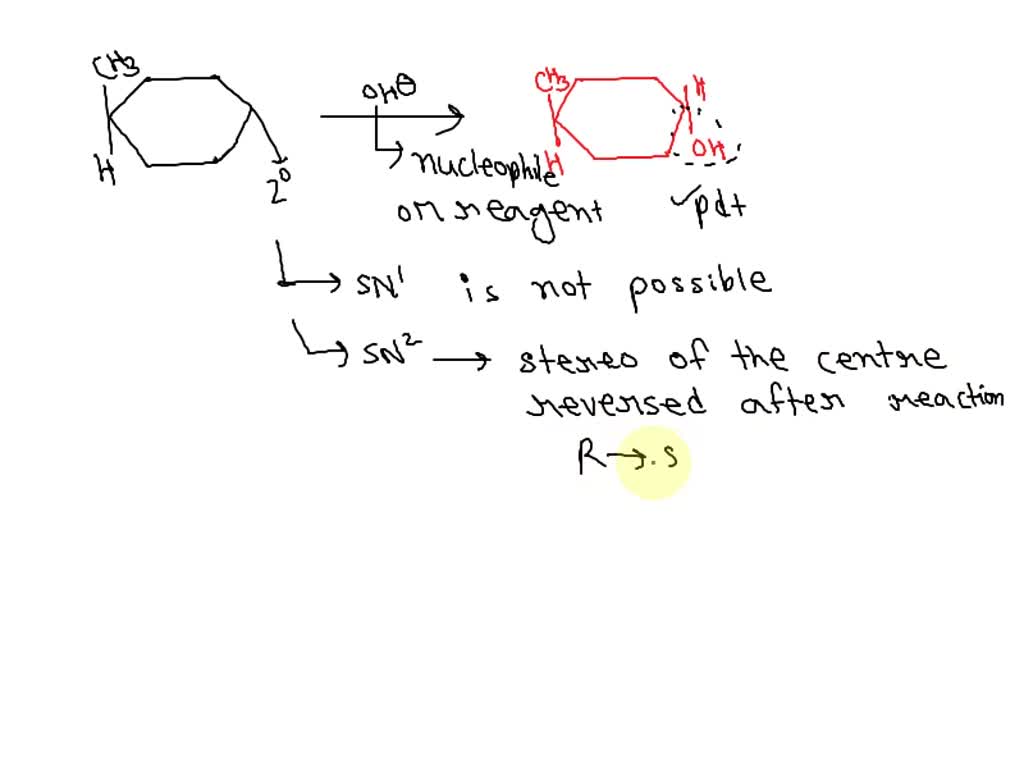 CH3
H
2°
OH⊖
nucleophile
or reagent
CH3
H
H
OH
✓pdt
SN¹ is not possible
SN² → stereo of the centre
reversed after reaction
R→.S